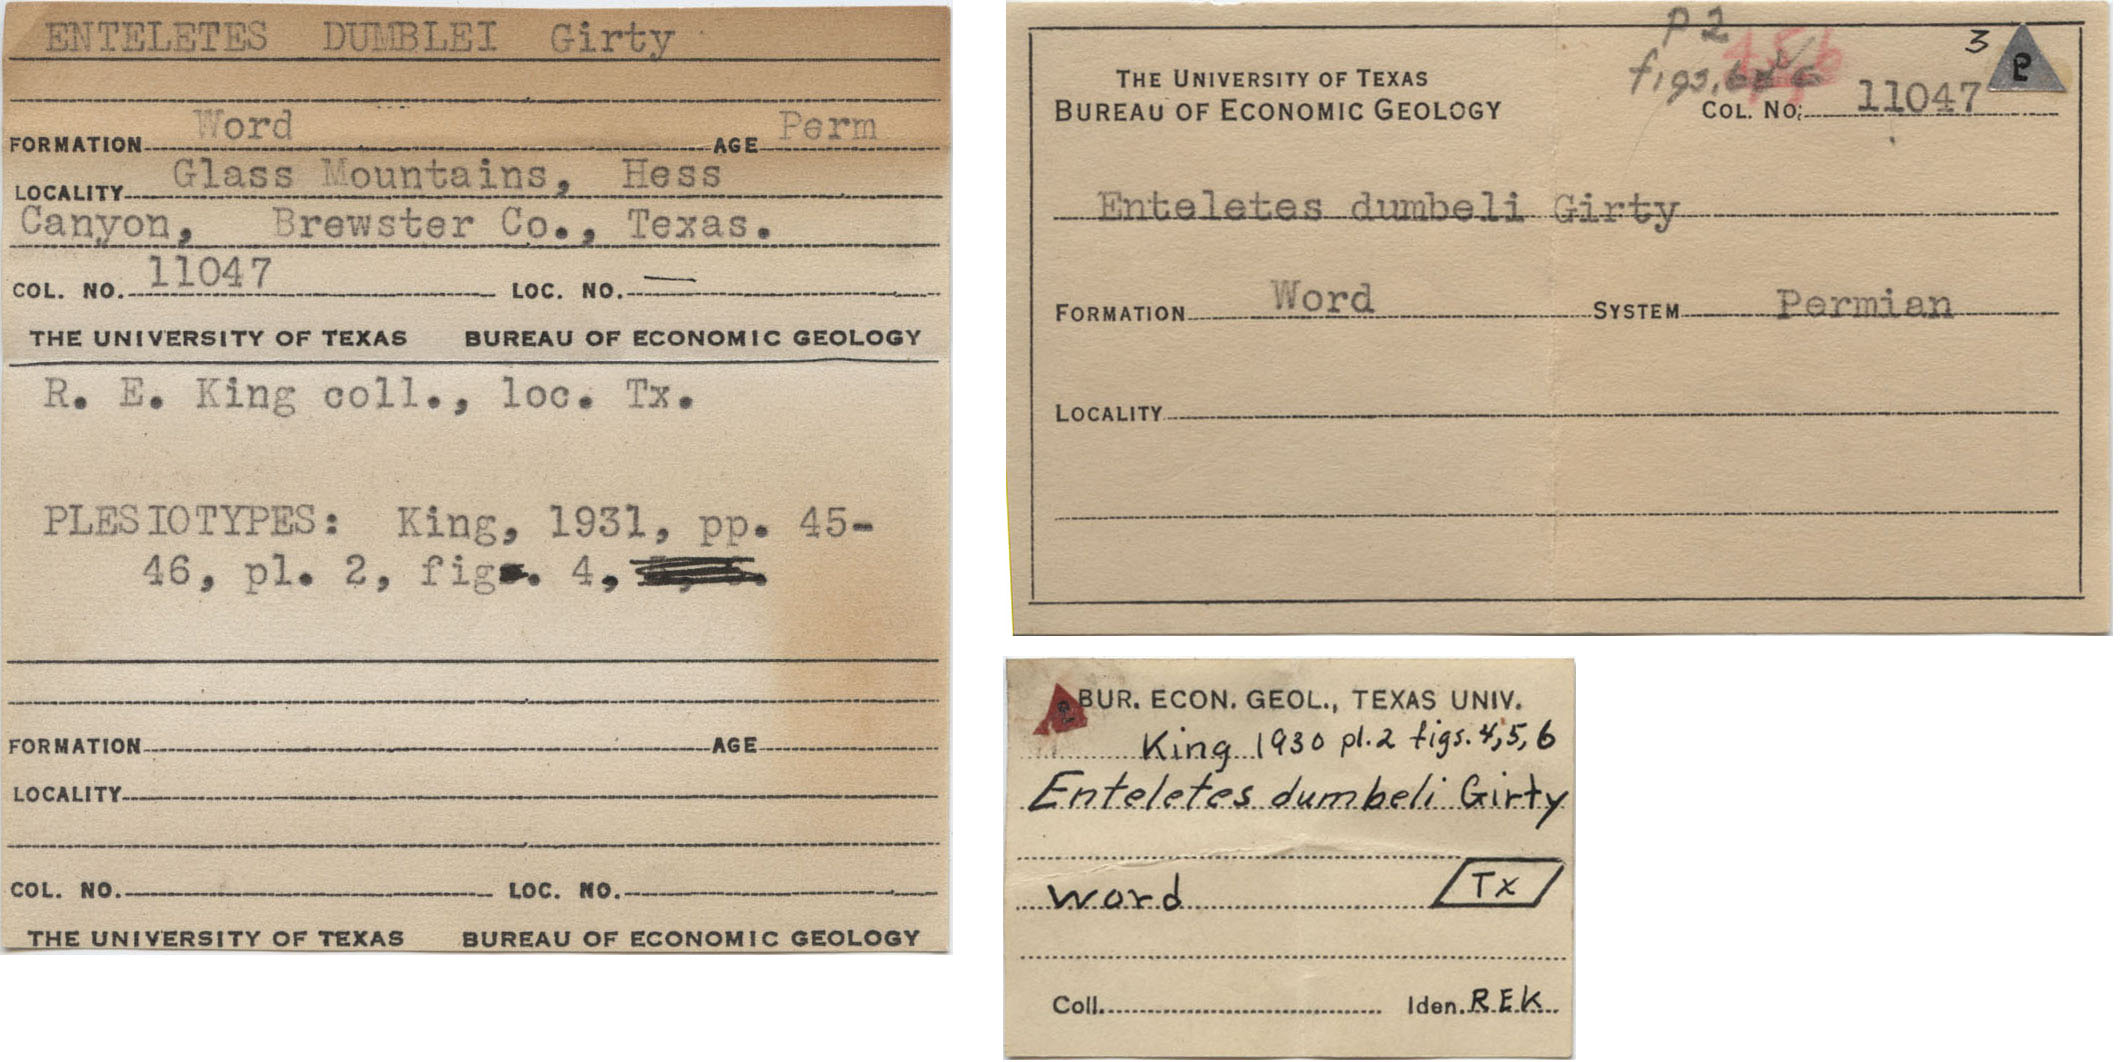 ENTELETES DUMBLEI Girty
FORMATION Word AGE Perm
LOCALITY Glass Mountains, Hess
Canyon, Brewster Co., Texas.
COL. NO. 11047 LOC. NO. —
THE UNIVERSITY OF TEXAS BUREAU OF ECONOMIC GEOLOGY
R. E. King coll., loc. Tx.
PLESIOTYPES: King, 1931, pp. 45-
46, pl. 2, fig. 4,
FORMATION AGE
LOCALITY
COL. NO. LOC. NO.
THE UNIVERSITY OF TEXAS BUREAU OF ECONOMIC GEOLOGY
P 2
figs.
3
THE UNIVERSITY OF TEXAS
BUREAU OF ECONOMIC GEOLOGY COL. NO. 11047
Enteletes dumbeli Girty
FORMATION Word SYSTEM Permian
LOCALITY
BUR. ECON. GEOL., TEXAS UNIV.
King 1930 pl. 2 figs. 4, 5, 6
Enteletes dumbeli Girty
Word Tx
Coll. Iden. REK